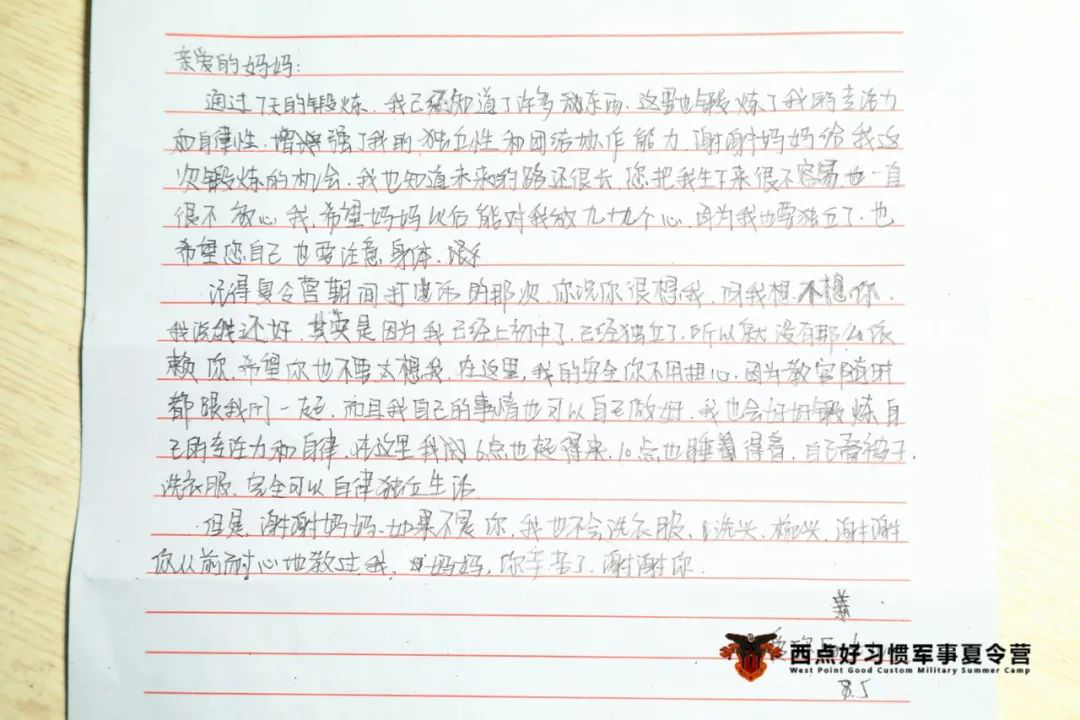 亲爱的妈妈:
通过7天的锻炼.我已经知道了许多新东西.这里也锻炼了我的专注力
和自律性.增强了我的独立性和团结协作能力.谢谢妈妈给我这
次锻炼的机会.我也知道未来的路还很长.您把我生下来很不容易也一直
很不放心我.希望妈妈以后能对我放九十九个心.因为我也要独立了.也
希望您自己也要注意身体.
记得夏令营期间打电话的那次.你说你很想我.问我想不想你.
我说我还好.其实是因为我已经上初中了.已经独立了.所以就没有那么依
赖你.希望你也不要太想我.在这里,我的安全你不用担心.因为教官随时
都跟我们一起.而且我自己的事情也可以自己做好.我也会好好锻炼自
己的专注力和自律.在这里我们6点也起得来.10点也睡得着.自己叠被子.
洗衣服.完全可以自律独立生活.
但是,谢谢妈妈.如果不是你,我也不会洗衣服.洗头.梳头.谢谢
你以前耐心地教过我.妈妈,你辛苦了.谢谢你.
8.5
西点好习惯军事夏令营
West Point Good Custom Military Summer Camp